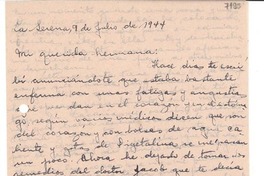 7195
La Serena, 9 de Julio de 1944
Mi querida hermana:
Hace dias te escri
bi anunciándote que estaba bastante
enferma con unas fatigas y angustia
que me dan en el corazón y en el estóma
go según varios médicos dicen que son
del corazón y con bolsas de agua ca
liente y gotas de Digetalina se me pasan
un poco. Ahora he dejado de tomar los
remedios del doctor Jacob que te decía